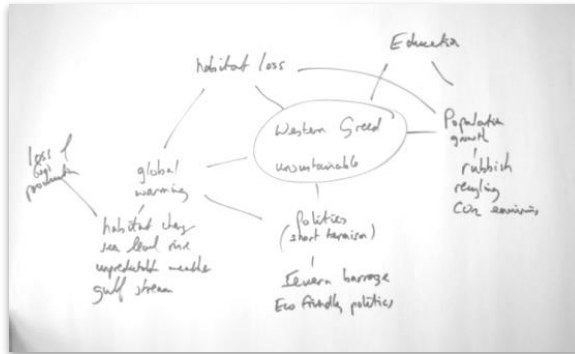 Education
habitat loss
Western Greed
unsustainable
Population
growth
rubbish
recycling
emissions
loss of
production
global
warming
habitat change
sea level rise
unpredictable weather
gulf stream
Politics
(short termism)
Severn barrage
Eco friendly politics